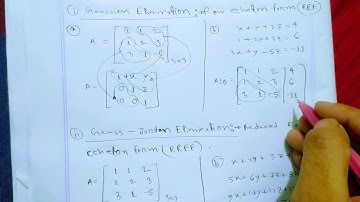 (i) Gaussian Elimination :- Row echelon form (REF)
(a)
A = [ 1 1 2
1 2 3
3 1 -5 ] 3x3
A = [ 1
0 1 2
0 0 1 ]
(b) x + y + 2z = 4
x + 2y + 3z = 6
3x + y - 5z = -11
A:B = [ 1 1 2 | 4
1 2 3 | 6
3 1 -5 | -11
ii) Gauss - Jordan Elimination :- Reduced
echelon form (RREF)
A = [ 1 1 2
1 2 3
3 1 -5 ] 3x3
(b)